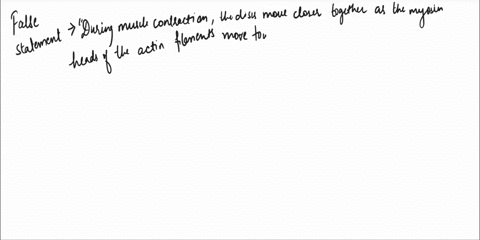 False
statement → "During muscle contraction, the discs move closer together as the myosin
heads of the actin filaments move to